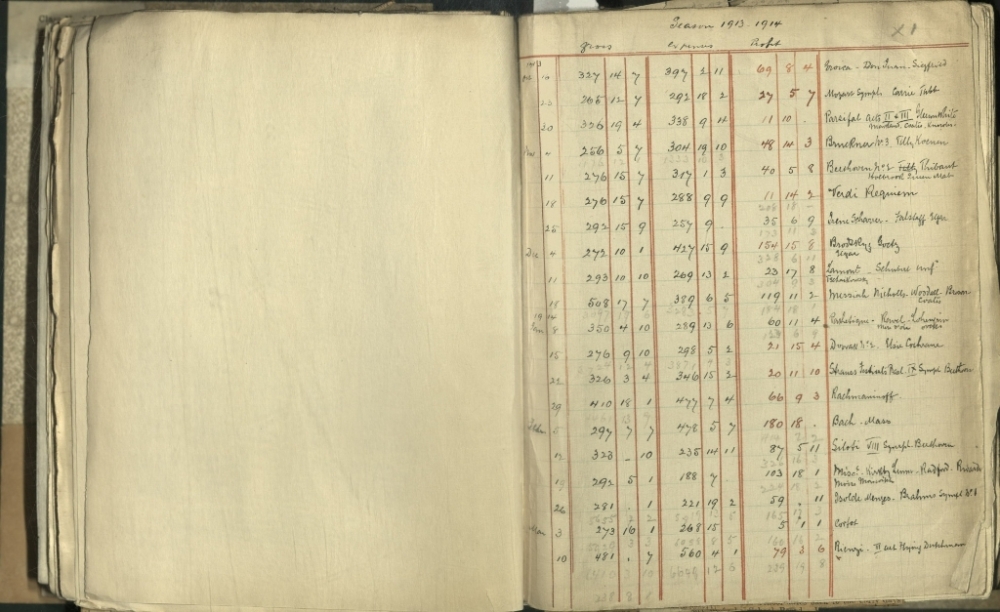 Season 1913-1914 XI
gross expenses Profit
1913
Oct 16 327 14 7 397 2 11 69 8 4 Eroica - Don Juan - Siegfried
23 265 12 7 292 18 2 27 5 7 Mozart Symph Carrie Tubb
30 326 19 4 338 9 4 11 10 . Parsifal Acts II & III Gleeson White
Coates,
Nov 4 256 5 7 304 19 10 48 14 3 Bruckner No 3. Tilly Koenen
11 276 15 7 317 1 3 40 5 8 Beethoven No 2 Thibaut
18 276 15 7 288 9 9 11 14 2 Verdi Requiem
25 292 15 9 257 9 . 35 6 9 Irene Scharrer - Falstaff Elgar
Dec 4 272 10 1 427 15 9 154 15 8 Brodsky
Elgar
11 293 10 10 269 13 2 23 17 8 Lamond - Schubert unf
Tschaikowsky
18 508 17 7 389 6 5 119 11 2 Messiah Nicholls - Woodall - Brown
Coates
1914
Jan 8 350 4 10 289 13 6 60 11 4 Pathetique - Ravel - Lohengrin
15 276 9 10 298 5 2 21 15 4 Dvorak No 2. Elsie Cochrane
22 326 3 4 346 15 2 20 11 10 Strauss Festival Prel. IX Symph Beethoven
29 410 18 1 477 7 4 66 9 3 Rachmaninoff
Feb 5 297 7 7 478 5 7 180 18 . Bach - Mass
12 323 _ 10 235 14 11 87 5 11 Siloti VIII Symph. Beethoven
19 292 5 1 188 7 . 103 18 1 Kirkby Lunn - Radford -
26 281 . 1 221 19 2 59 . 11 Isolde Menges - Brahms Symph No 3
Mar 3 273 16 1 268 15 5 1 1 Cortot
10 481 . 7 560 4 1 79 3 6 Rienzi - II act Flying Dutchman